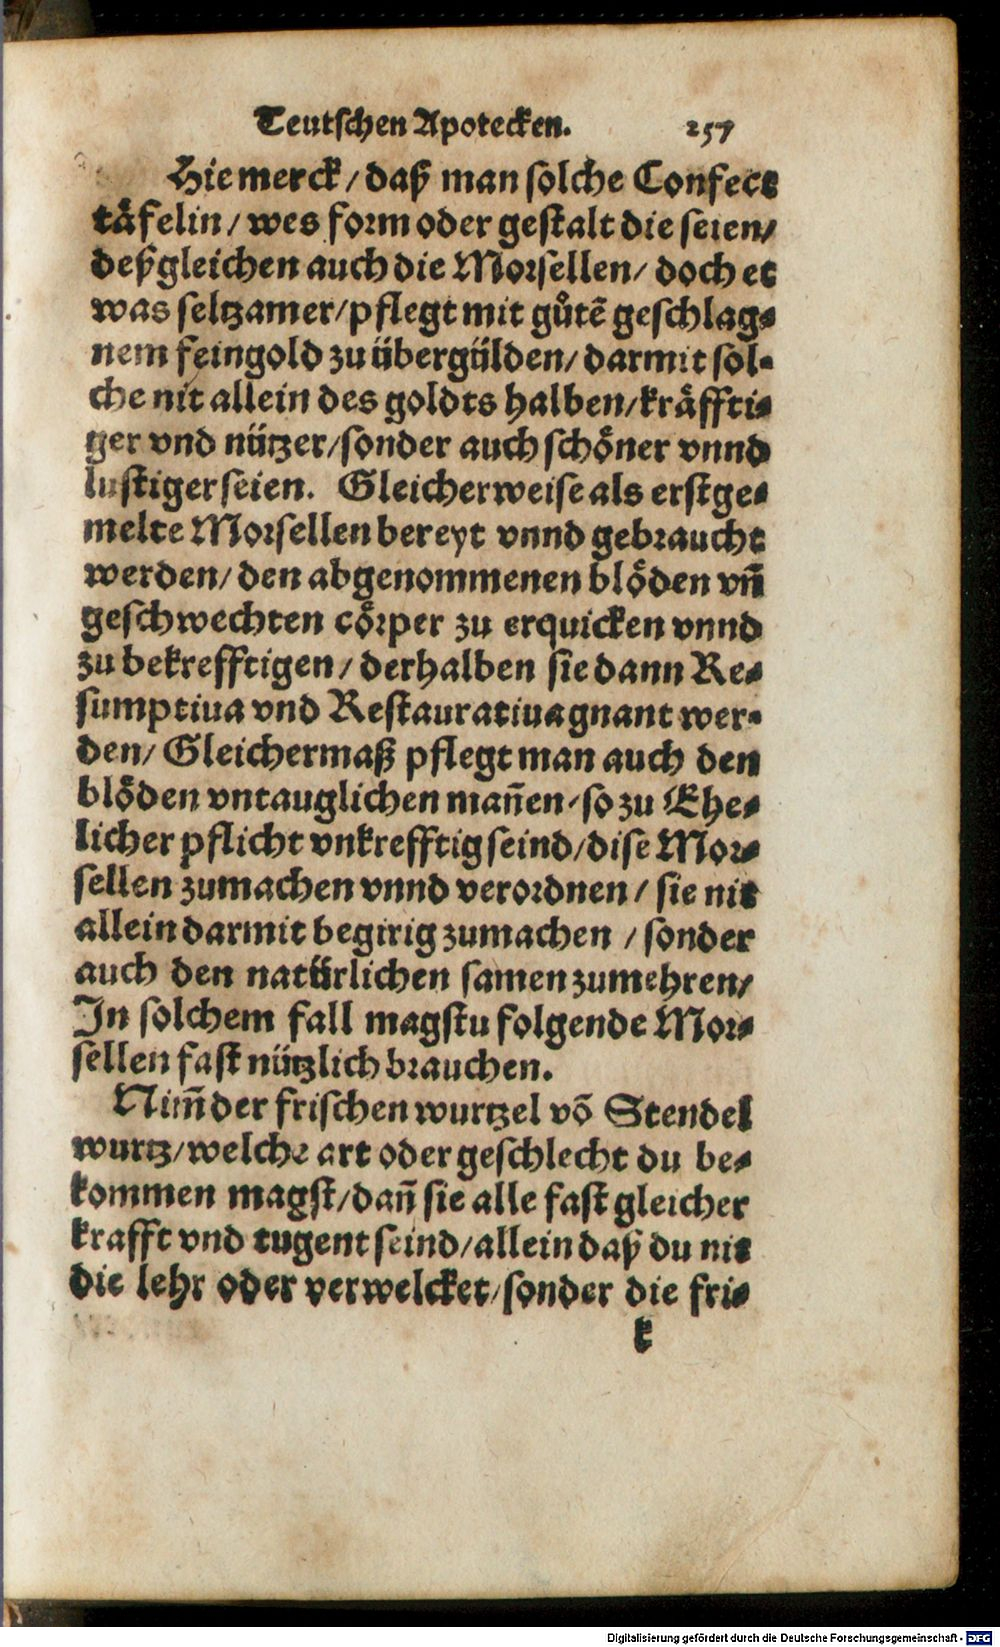 Teutschen Apotecken. 257
Hie merck / daß man solche Confect
täfelin / wes form oder gestalt die seien /
deßgleichen auch die Morsellen / doch et
was seltzamer / pflegt mit gůtē geschlag-
nem feingold zu übergülden / darmit sol-
che nit allein des goldts halben / kräffti-
ger vnd nützer / sonder auch schöner vnnd
lustiger seien. Gleicherweise als erstge-
melte Morsellen bereyt vnnd gebraucht
werden / den abgenommenen blöden vñ
geschwechten cörper zu erquicken vnnd
zu bekrefftigen / derhalben sie dann Re-
sumptiua vnd Restauratiua gnant wer-
den / Gleichermaß pflegt man auch den
blöden vntauglichen mañen / so zu Ehe-
licher pflicht vnkrefftig seind / dise Mor-
sellen zumachen vnnd verordnen / sie nit
allein darmit begirig zumachen / sonder
auch den natürlichen samen zumehren /
In solchem fall magstu folgende Mor-
sellen fast nützlich brauchen.
Nim̃ der frischen wurtzel võ Stendel
wurtz / welche art oder geschlecht du be-
kommen magst / dañ sie alle fast gleicher
krafft vnd tugent seind / allein daß du nit
die lehr oder verwelcket / sonder die fri-
k
Digitalisierung gefördert durch die Deutsche Forschungsgemeinschaft - DFG